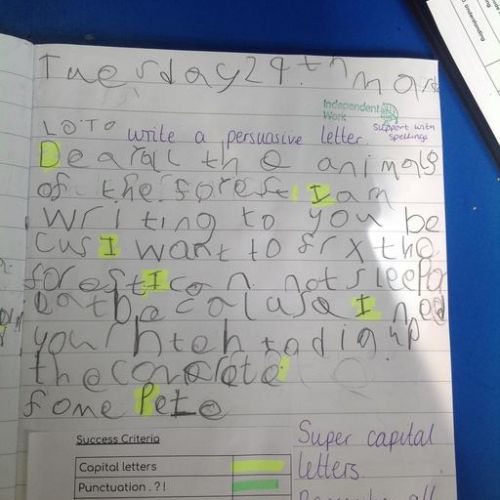 Tuesday 29.th mars
Independent
Work
LOTO write a persuasive letter. Support with
spellings
Dear all the animals
of the forest. I am
writing to you be
cus I want to fix the
forest I can not sleep or
eat be ca use I need
your h teh to dig up
the concrete.
fome Pete
Success Criteria
Capital letters
Punctuation . ? !
Super capital
letters.